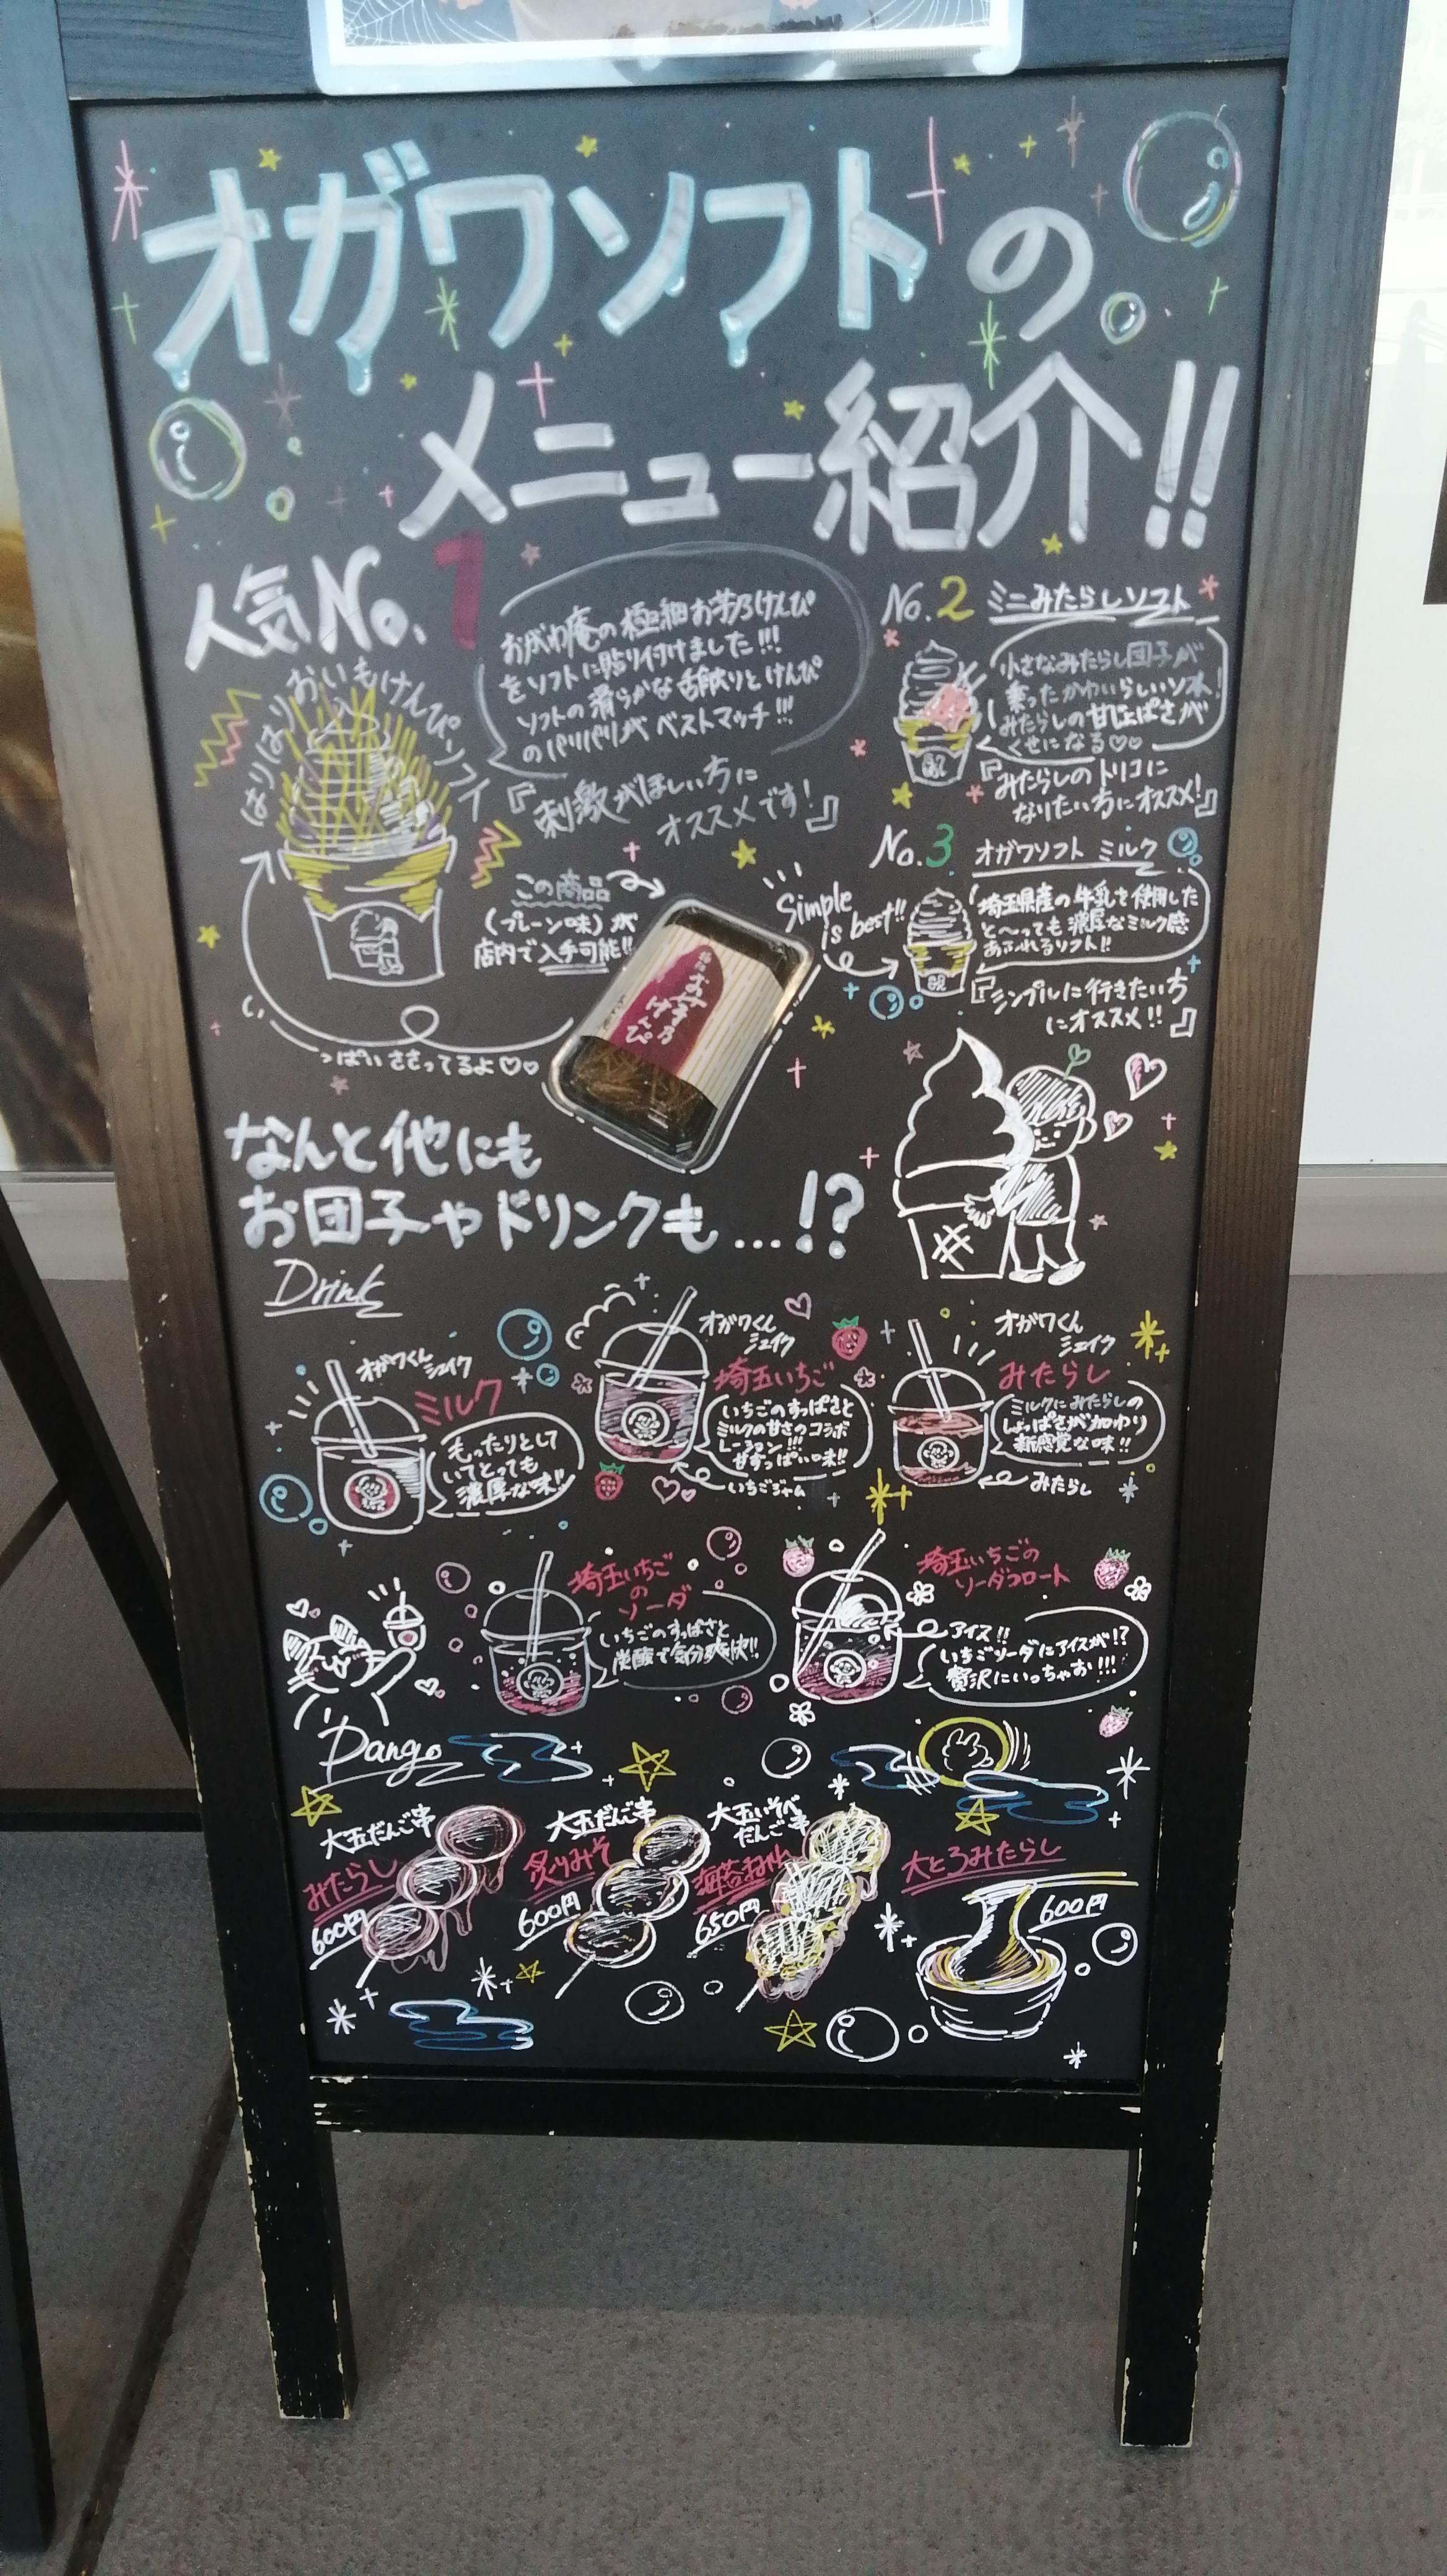 オガワソフトの
メニュー紹介!!
人気No.1
はりはりおいもけんぴソフト
おがわ庵の極細お芋乃けんぴ
をソフトに貼り付けました!!!
ソフトの滑らかな舌触りとけんぴ
のパリパリがベストマッチ!!!
『刺激がほしい方に
オススメです!』
この商品
(プレーン味)が
店内で入手可能!!
お芋乃
けんぴ
いっぱいささってるよ♡♡
No.2 ミニみたらしソフト
小さなみたらし団子が
乗ったかわいらしいソフト!
みたらしの甘じょぱさが
くせになる♡♡
『みたらしのトリコに
なりたい方にオススメ!』
No.3 オガワソフト ミルク
Simple
is best!!
埼玉県産の牛乳を使用した
と〜っても濃厚なミルク感
あふれるソフト!!
『シンプルに行きたい方
にオススメ!!』
なんと他にも
お団子やドリンクも...!?
Drink
オガワくんシェイク
ミルク
もったりとして
いてとっても
濃厚な味!!
オガワくん
シェイク
埼玉いちご
いちごのすっぱさと
ミルクの甘さのコラボ
レーション!!!
甘ずっぱい味!!
いちごジャム
オガワくん
シェイク
みたらし
ミルクにみたらしの
しょっぱさが加わり
新感覚な味!!
みたらし
埼玉いちご
の
ソーダ
いちごのすっぱさと
炭酸で気分爽快!!
埼玉いちごの
ソーダフロート
アイス!!
いちごソーダにアイスが!?
贅沢にいっちゃお!!!
Dango
大玉だんご串
みたらし
600円
大玉だんご串
炙りみそ
600円
大玉いそべ
だんご串
650円
大とろみたらし
600円